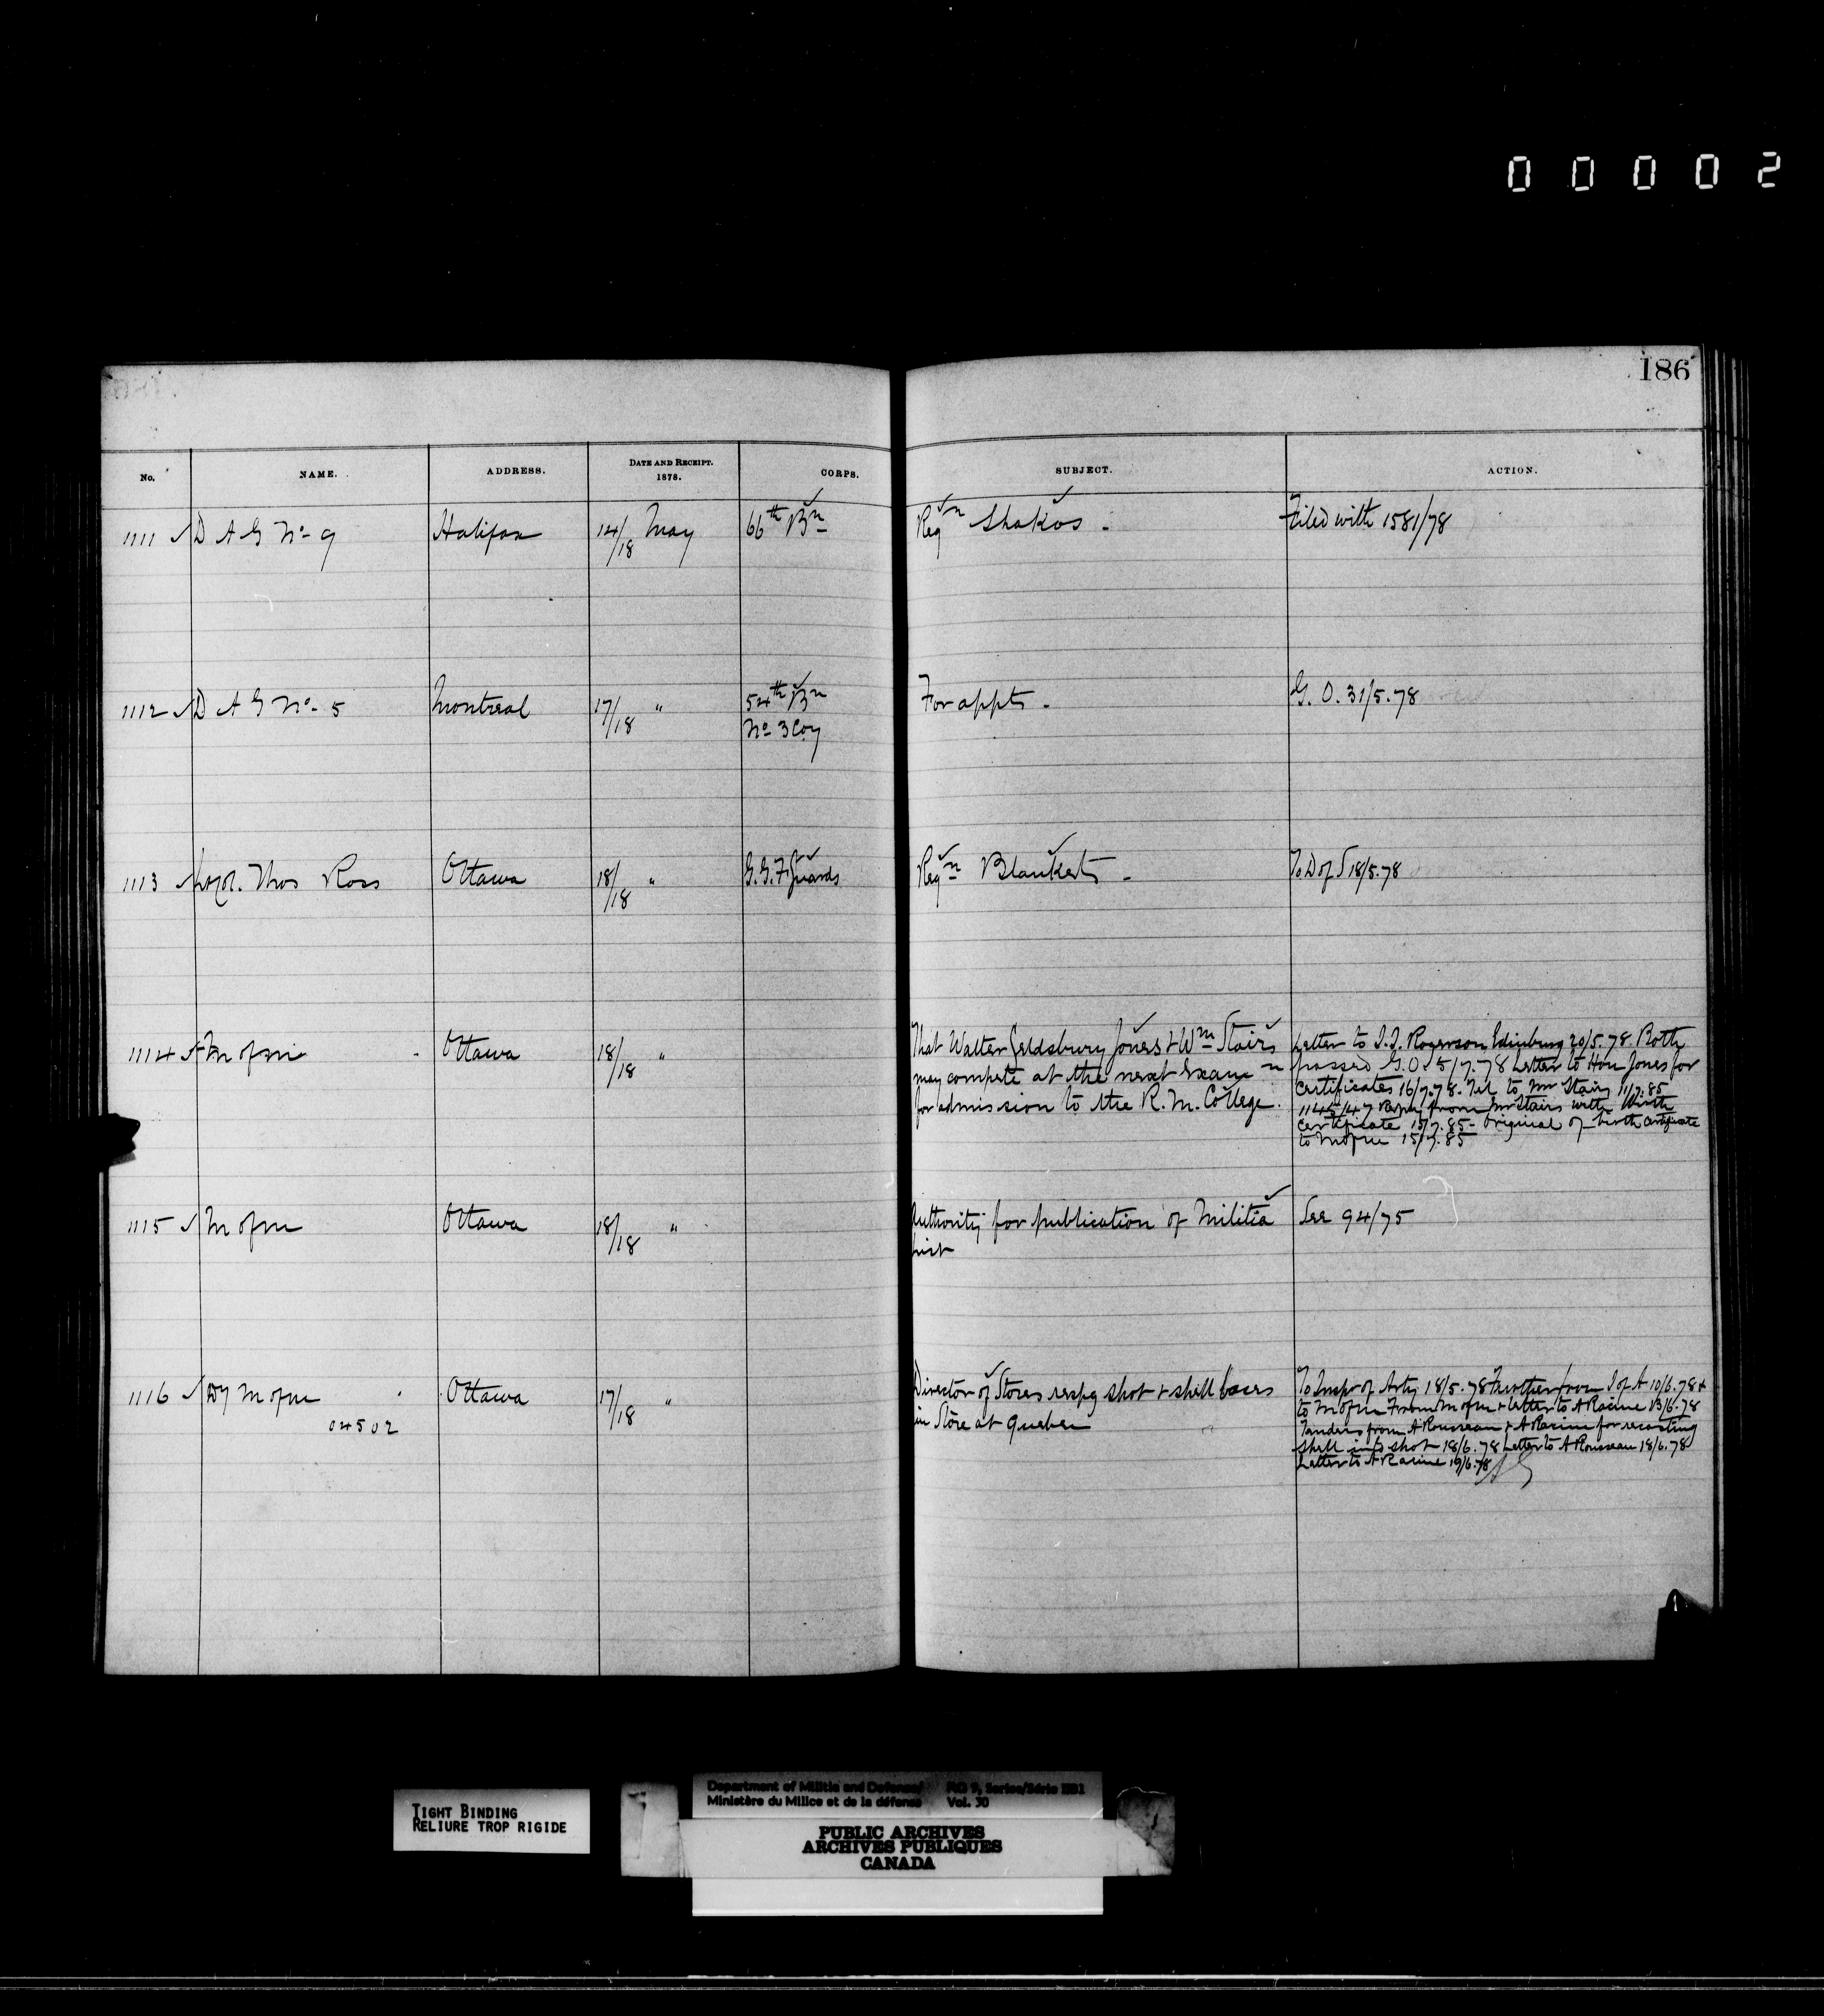 00002
186
No. NAME. ADDRESS. DATE AND RECEIPT. 1878. CORPS. SUBJECT. ACTION.
1111 D A G No 9 Halifax 14/18 May 66th Bn Reqn Shakos - Filed with 1581/78
1112 D A G No 5 Montreal 17/18 " 54th Bn For appts - G.O. 31/5.78
No 3 Coy
1113 Thos Ross Ottawa 18/18 " G.G.F. Guards Reqn Blankets - To D of S 18/5.78
1114 M of M Ottawa 18/18 "
That Walter Jones & Wm Stairs
may compete at the next Exam n
for admission to the R. M. College.
Letter to J.J. Rogerson Edinburg 20/5.78 Both
passed G.O. 5/7.78 Letter to Hon Jones for
Certificates 16/7.78. Tel to Mr Stairs 11/7.85
from Mr Stairs with Birth
Certificate 15/7.85 - Original of birth certificate
to M of M 15/7.85
1115 M of M Ottawa 18/18 "
Authority for publication of Militia
List
See 94/75
1116 Dy M of M Ottawa 17/18 "
04502
Director of Stores respg shot & shell
in Store at Quebec
To Inspr of Arty 18/5.78 Further from I of A 10/6.78 &
to M of M From M of M & letter to A Racine 13/6.78
Tenders from A Rousseau & A Racine for recasting
shell into shot 18/6.78 Letter to A Rousseau 18/6.78
Letter to A Racine 19/6.78
TIGHT BINDING
RELIURE TROP RIGIDE
Department of Militia and Defence/
Ministère du Milice et de la défense
RG 9, Series/Série IIB1
Vol. 30
PUBLIC ARCHIVES
ARCHIVES PUBLIQUES
CANADA